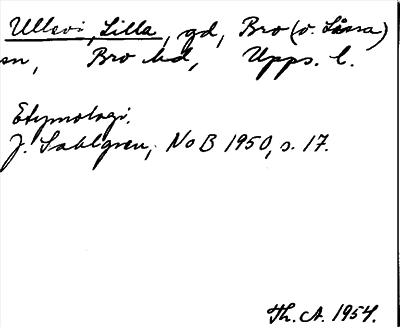 Ullevi, Lilla, gd, Bro (o. Låssa)
sn, Bro hd, Upps. l.
Etymologi.
J. Sahlgren, NoB 1950, s. 17.
Th. A. 1954.